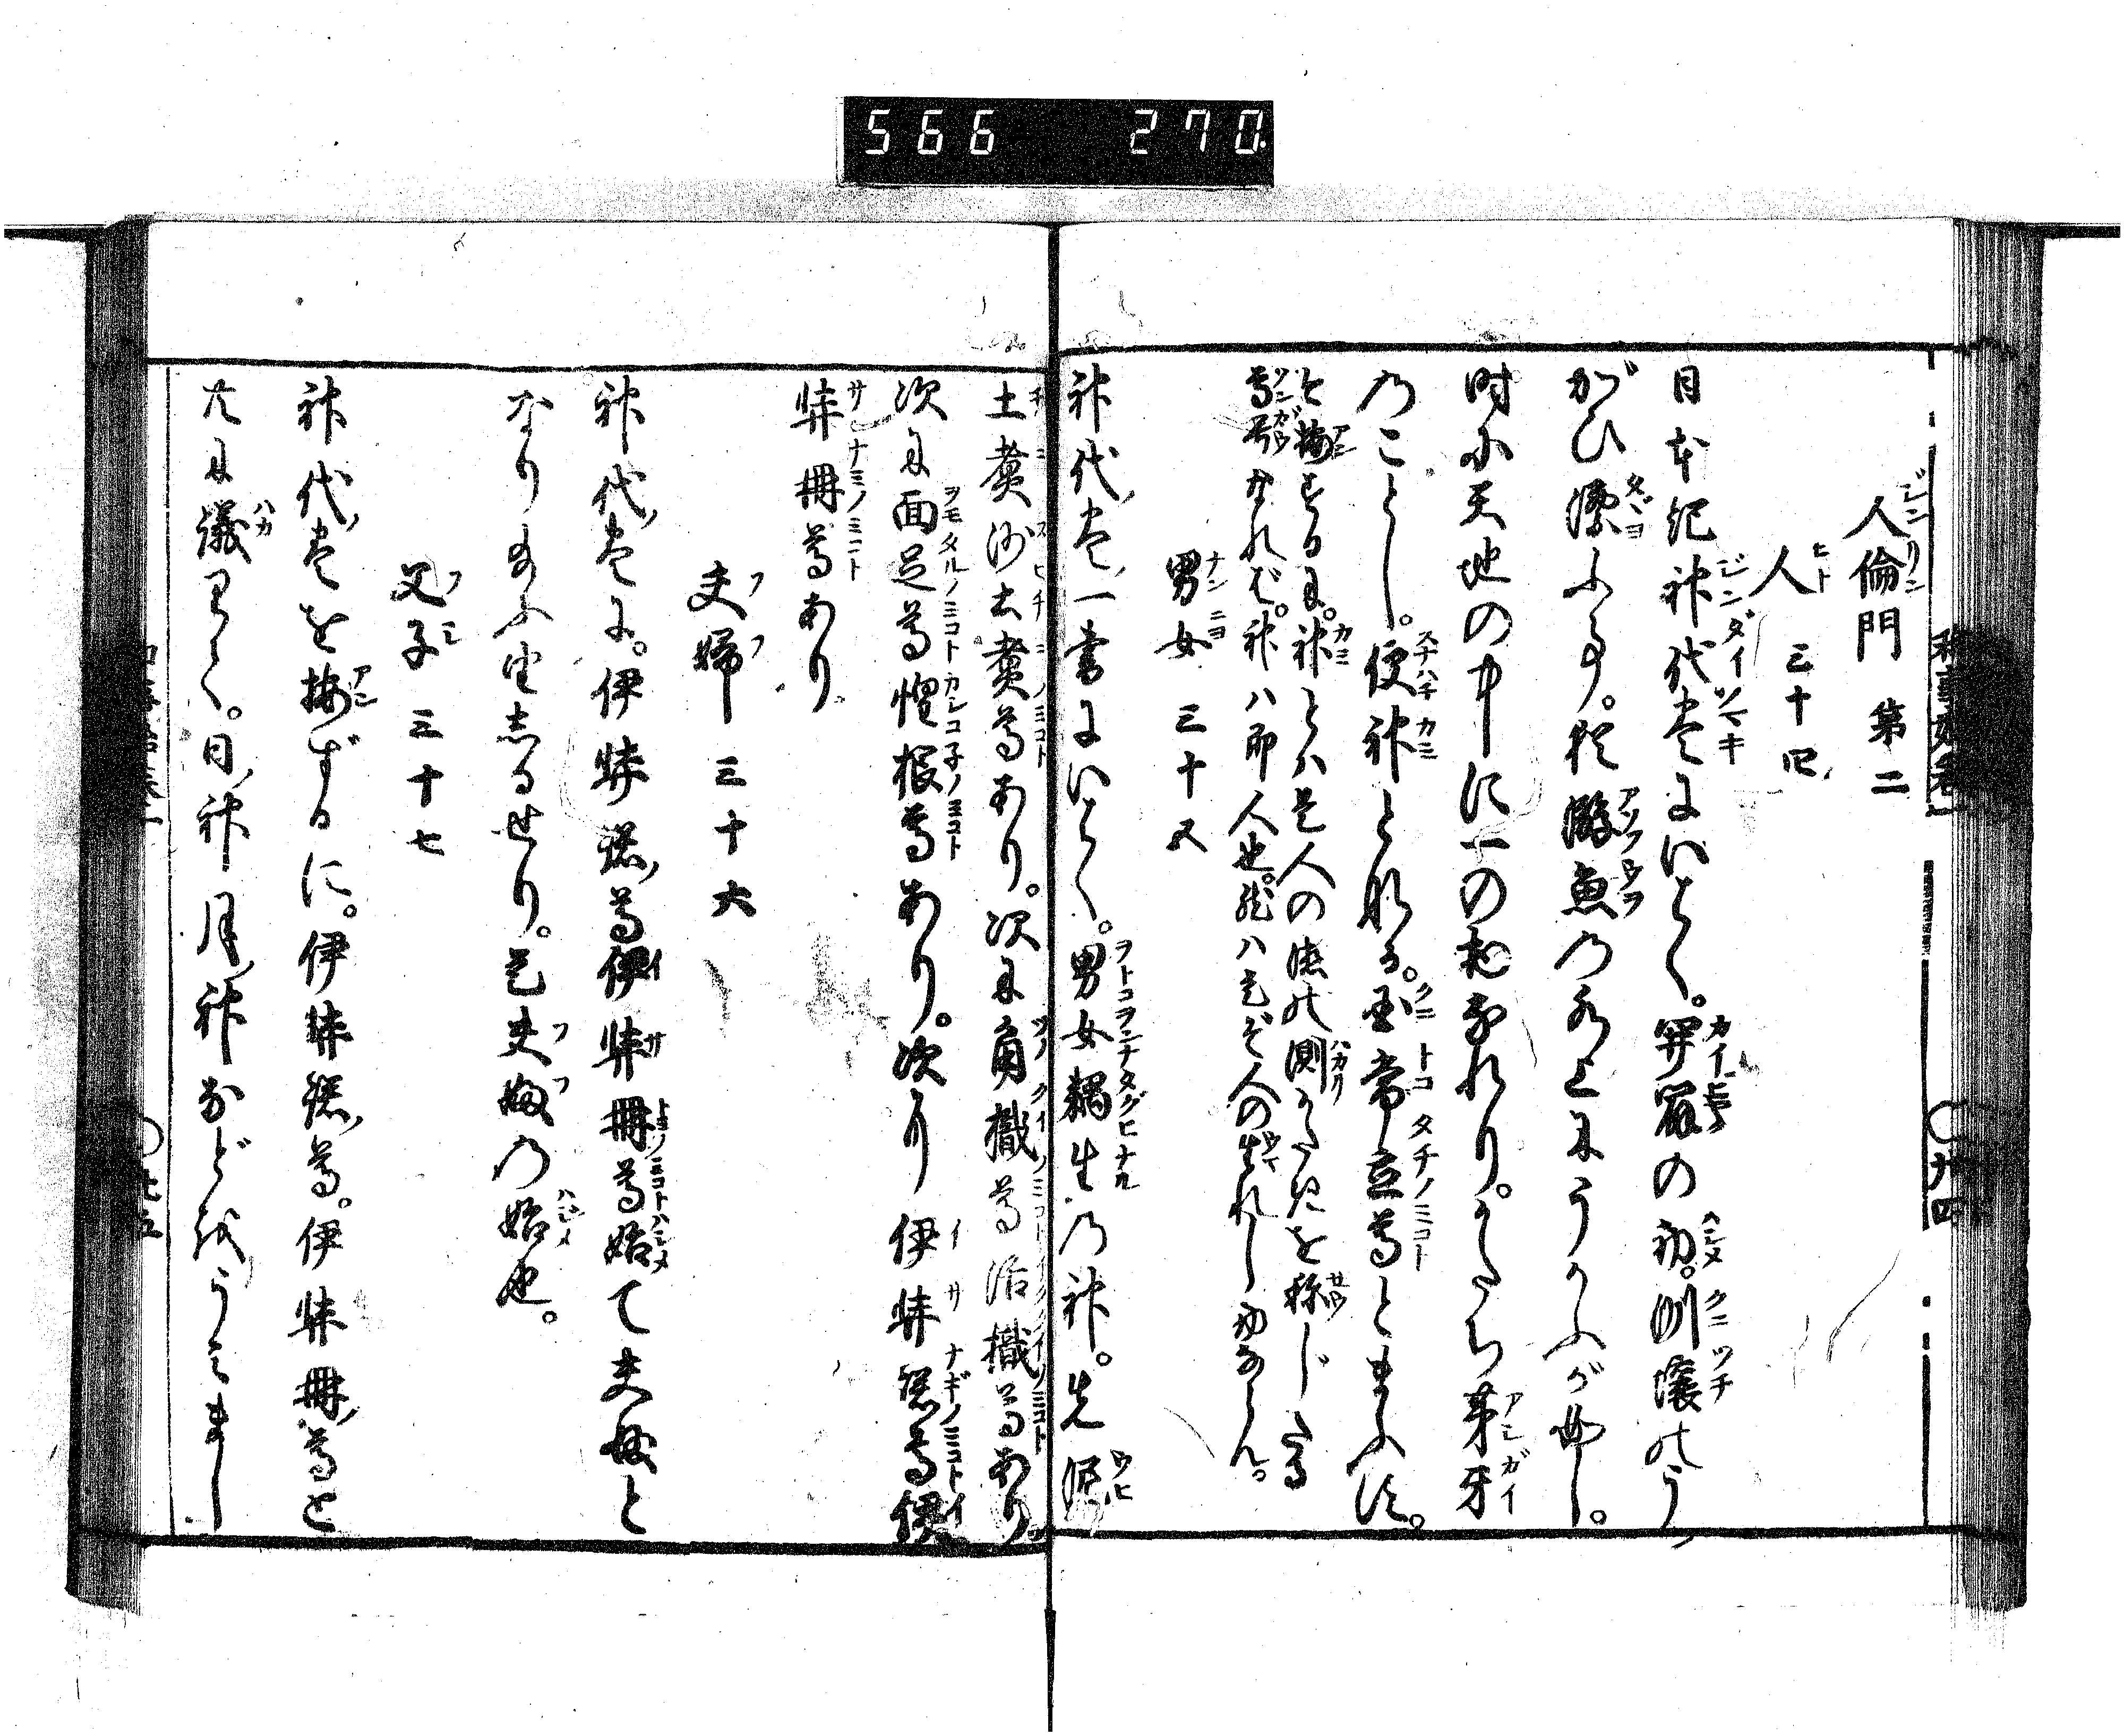 566 270
人倫門 第二
人 三十四
日本紀神代巻にいはく。開闢の初。洲壌のう
かび漂ふ事。猶游魚の水上にうかふが如し。
時に天地の中に一の物なれり。かたち葦牙
のことし。便神となれる。国常立尊とまふす。
を按ずるに。神とハ是人の徳の測
尊号なれば。神ハ即人也。然ハ是ぞ人の生れし初ならん。
男女 三十五
神代巻一書にいはく。男女耦生の神。先埿
土煑沙土煑尊あり。次に角樴尊活樴尊あり。
次に面足尊惶根尊あり。次に伊弉諾尊伊
弉冊尊あり。
夫婦 三十六
神代巻に。伊弉諾尊伊弉冊尊始て夫婦と
なり給ふ由しるせり。是夫婦の始也。
父子 三十七
神代巻を按ずるに。伊弉諾尊。伊弉冊尊と
共に議りて。日神月神などをうみまし